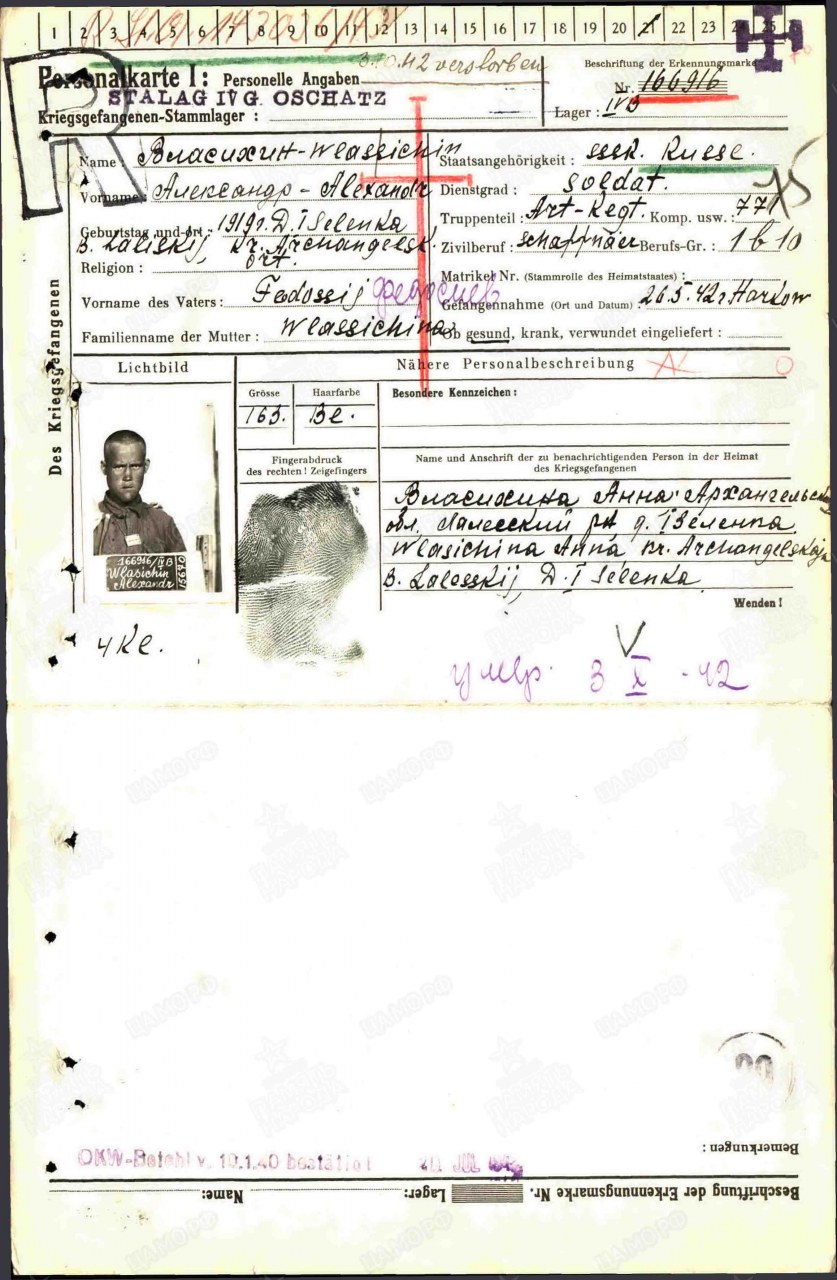 1 2 3 4 5 6 7 8 9 10 11 12 13 14 15 16 17 18 19 20 21 22 23 24 25
3.10.42 verstorben
Personalkarte I: Personelle Angaben
Beschriftung der Erkennungsmarke
Nr. 166916
STALAG IV G. OSCHATZ
Kriegsgefangenen-Stammlager :
Lager : IVB
R
Des Kriegsgefangenen
Name : Власихин-Wlassichin
Staatsangehörigkeit : SSSR. Russe.
Vorname: Александр - Alexandr
Dienstgrad : Soldat.
Geburtstag und -ort : 1919г. D. I Selenka
Truppenteil : Art-Regt. Komp. usw. : 771
B. Laliskij, Kr. Archangelsk.
Zivilberuf : Schaffnäer Berufs-Gr. : 1 b 10
Religion : ort.
Matrikel Nr. (Stammrolle des Heimatstaates) :
Vorname des Vaters : Fedossij
Gefangennahme (Ort und Datum) : 26.5.42г Harkow
Familienname der Mutter : Wlassichina
Ob gesund, krank, verwundet eingeliefert :
Lichtbild
Nähere Personalbeschreibung
Grösse Haarfarbe
163. Be.
Besondere Kennzeichen :
Fingerabdruck
des rechten ! Zeigefingers
Name und Anschrift der zu benachrichtigenden Person in der Heimat
des Kriegsgefangenen
Власихина Анна Архангельск
обл. Лалесский рн д. I Зеленка
Wlasichina Anna Kr. Archangelskaja
B. Lalesskij, D. I Selenka
166916/IV B
Wlasichin
Alexandr
Wenden !
4 Kl.
умер. 3 X -42
Bemerkungen :
OKW-Befehl v. 10.1.40 bestätigt 20 JUL
Beschriftung der Erkennungsmarke Nr. Lager: Name: